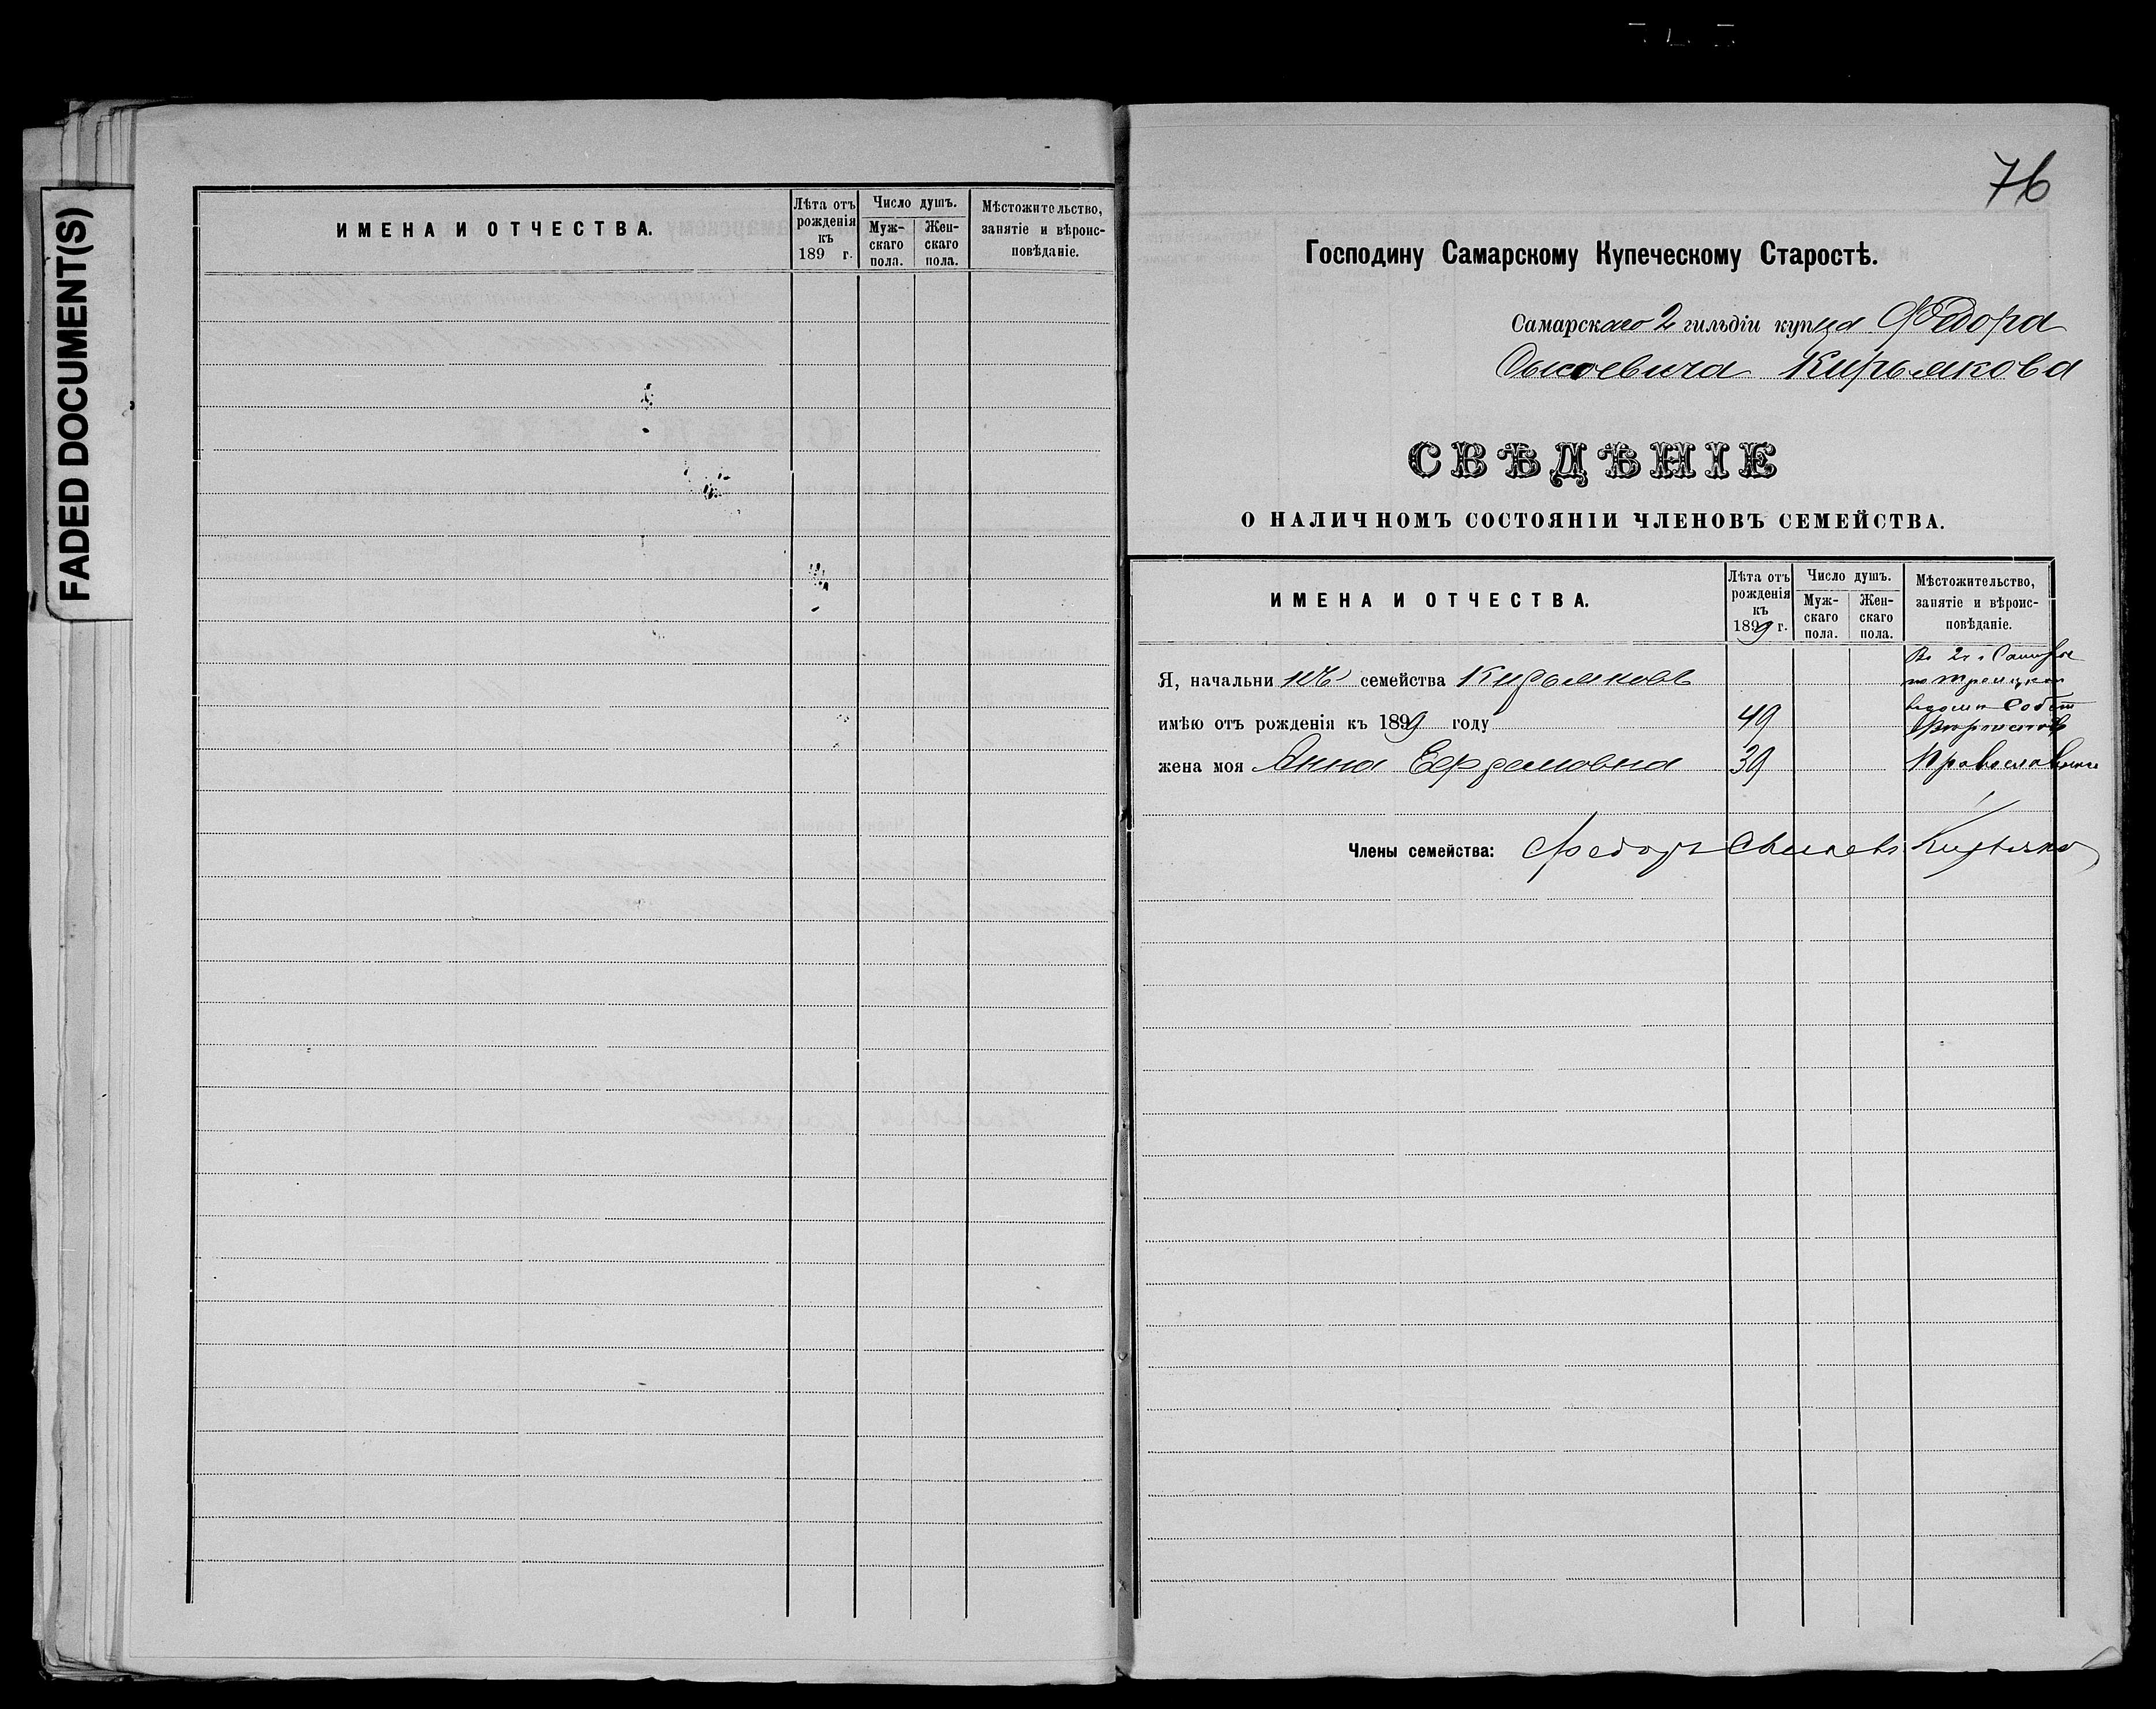 FADED DOCUMENT(S)
ИМЕНА И ОТЧЕСТВА.
Лѣта отъ рожденія къ 189 г.
Число душъ.
Мужскаго пола.
Женскаго пола.
Мѣстожительство, занятіе и вѣроисповѣданіе.
76
Господину Самарскому Купеческому Старостѣ.
Самарскаго 2 гильдіи купца Федора
Сысоевича Кирьякова
СВѢДѢНІЕ
О НАЛИЧНОМЪ СОСТОЯНІИ ЧЛЕНОВЪ СЕМЕЙСТВА.
ИМЕНА И ОТЧЕСТВА.
Лѣта отъ рожденія къ 1899 г.
Число душъ.
Мужскаго пола.
Женскаго пола.
Мѣстожительство, занятіе и вѣроисповѣданіе.
Я, начальникъ семейства Кирьяковъ
имѣю отъ рожденія къ 1899 году 49
жена моя Анна 39
Въ г. Самарѣ
по Троицкой
Православные
Члены семейства: Федоръ Кирьяковъ